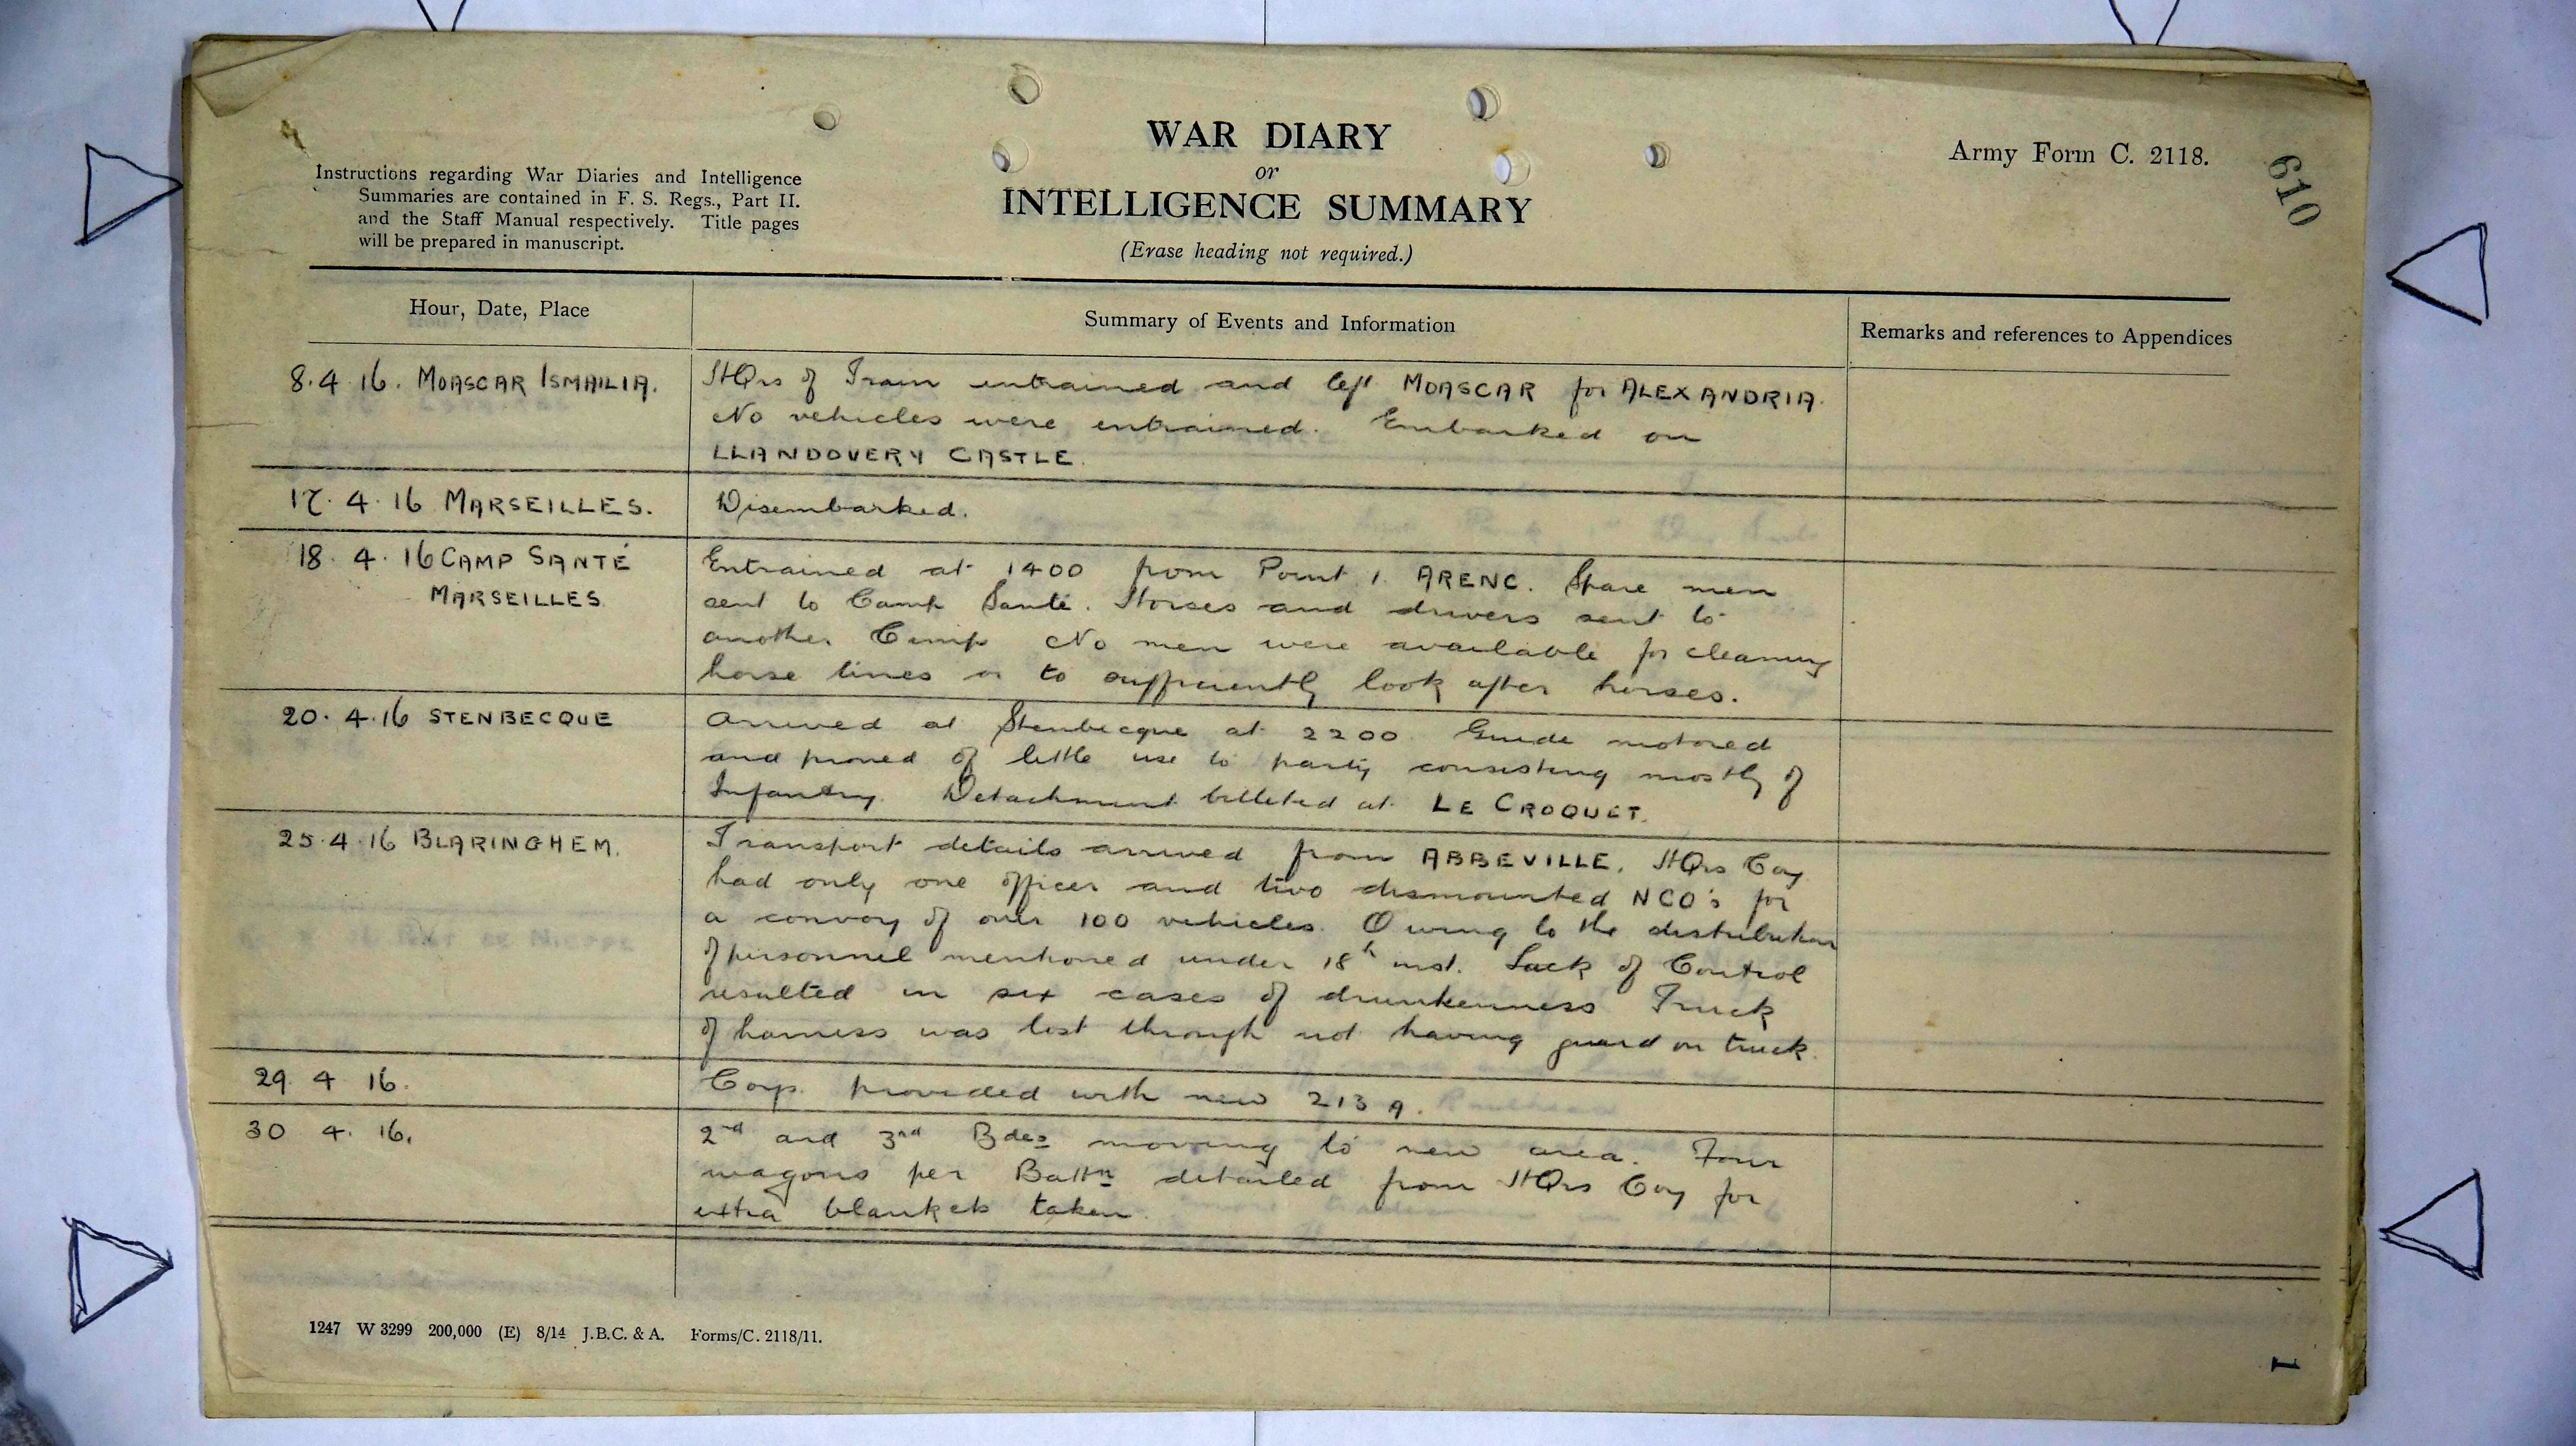 WAR DIARY
or
INTELLIGENCE SUMMARY
(Erase heading not required.)
Army Form C. 2118.
610
Instructions regarding War Diaries and Intelligence
Summaries are contained in F. S. Regs., Part II.
and the Staff Manual respectively. Title pages
will be prepared in manuscript.
Hour, Date, Place
Summary of Events and Information
Remarks and references to Appendices
8.4.16. MOASCAR ISMAILIA.
HQrs of Train entrained and left MOASCAR for ALEXANDRIA.
No vehicles were entrained. Embarked on
LLANDOVERY CASTLE.
17.4.16 MARSEILLES.
Disembarked.
18.4.16 CAMP SANTÉ
MARSEILLES.
Entrained at 1400 from Point 1 ARENC. Spare men
sent to Camp Santé. Horses and drivers sent to
another Camp No men were available for cleaning
horse lines or to sufficiently look after horses.
20.4.16 STENBECQUE
Arrived at Stenbecque at 2200. Guide motored
and proved of little use to party consisting mostly of
Infantry. Detachment billeted at LE CROQUET.
25.4.16 BLARINGHEM.
Transport details arrived from ABBEVILLE. HQrs Coy
had only one officer and two dismounted NCO's for
a convoy of over 100 vehicles. Owing to the distribution
of personnel mentioned under 18h inst. Lack of Control
resulted in six cases of drunkenness Truck
of harness was lost through not having guard on truck.
29 4 16.
Corp. provided with new 213 A.
30 4. 16.
2nd and 3rd Bdes moving to new area. Four
wagons per Battn detailed from HQrs Coy for
extra blankets taken.
1247 W 3299 200,000 (E) 8/14 J.B.C. & A. Forms/C. 2118/11.
1